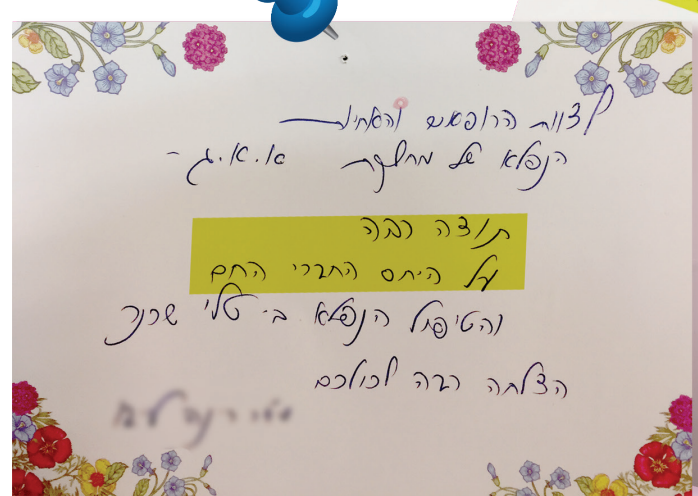 לצוות הרופאים והאחיות
הנפלא של מחלקת א.א.ג -
תודה רבה
על היחס החברי החם
והטיפול הנפלא ב- טלי
הצלחה רבה לכולכם